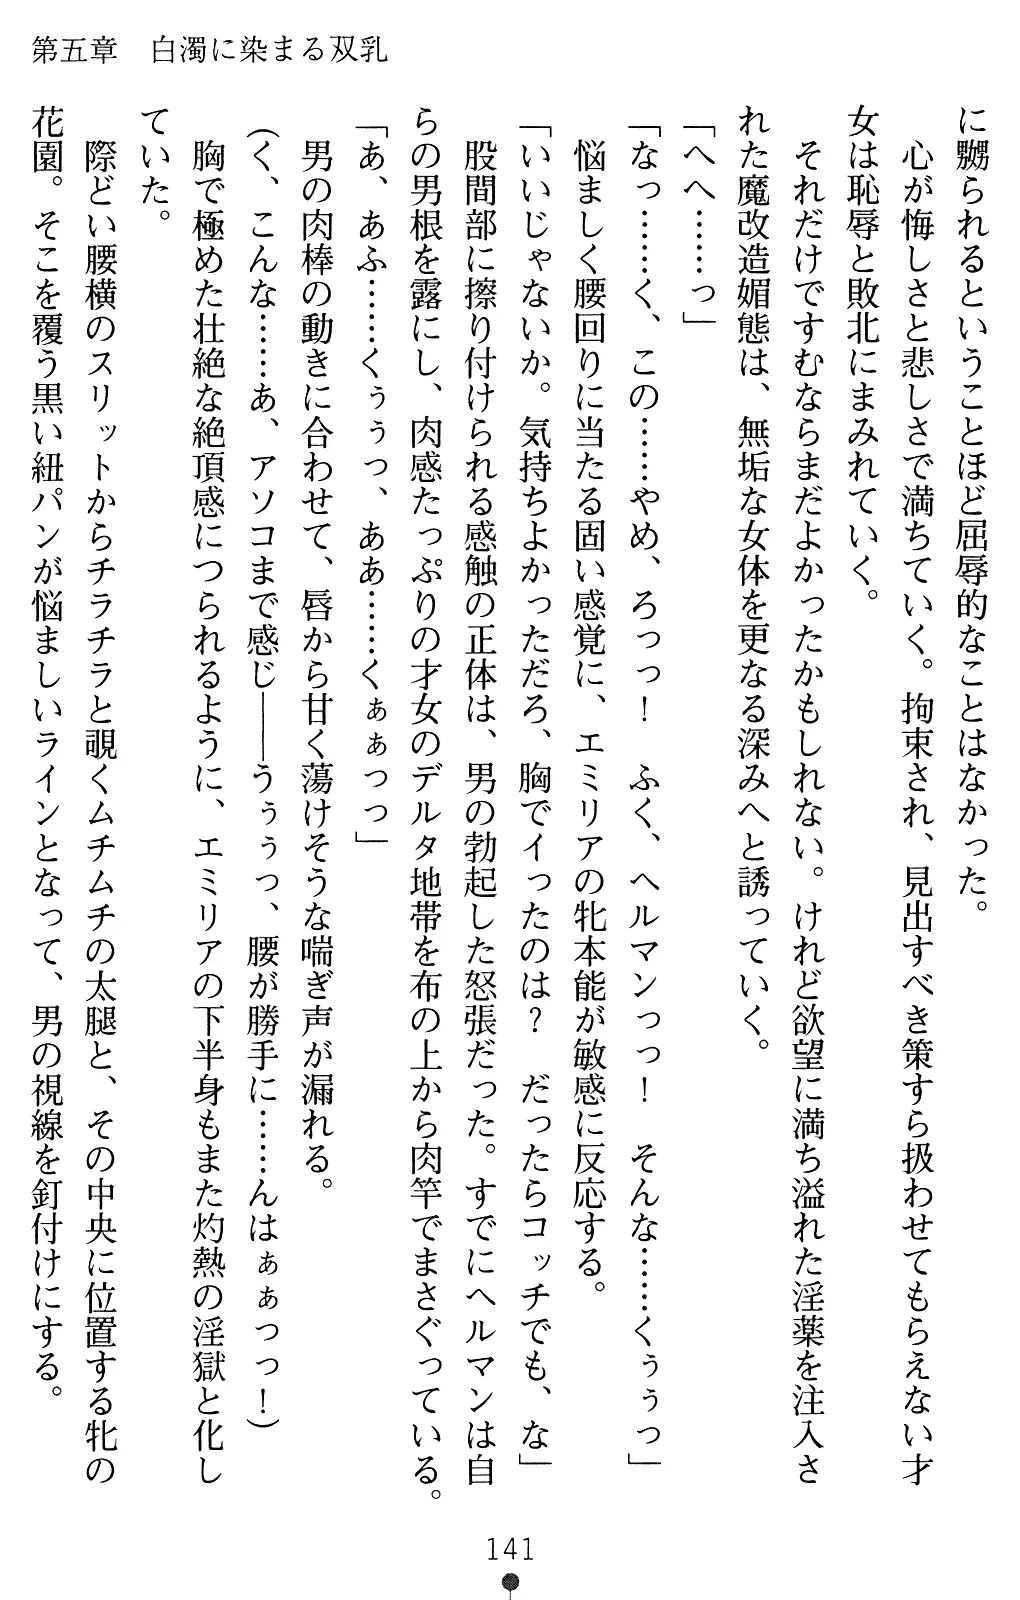 第五章　白濁に染まる双乳
に嬲られるということほど屈辱的なことはなかった。
　心が悔しさと悲しさで満ちていく。拘束され、見出すべき策すら扱わせてもらえない才
女は恥辱と敗北にまみれていく。
　それだけですむならまだよかったかもしれない。けれど欲望に満ち溢れた淫薬を注入さ
れた魔改造媚態は、無垢な女体を更なる深みへと誘っていく。
「へへ……っ」
「なっ……く、この……やめ、ろっっ！　ふく、ヘルマンっっ！　そんな……くぅぅっ」
　悩ましく腰回りに当たる固い感覚に、エミリアの牝本能が敏感に反応する。
「いいじゃないか。気持ちよかっただろ、胸でイったのは？　だったらコッチでも、な」
　股間部に擦り付けられる感触の正体は、男の勃起した怒張だった。すでにヘルマンは自
らの男根を露にし、肉感たっぷりの才女のデルタ地帯を布の上から肉竿でまさぐっている。
「あ、あふ……くぅぅっ、ああ……くぁぁっっ」
　男の肉棒の動きに合わせて、唇から甘く蕩けそうな喘ぎ声が漏れる。
（く、こんな……あ、アソコまで感じ――うぅぅっ、腰が勝手に……んはぁぁっっ！）
　胸で極めた壮絶な絶頂感につられるように、エミリアの下半身もまた灼熱の淫獄と化し
ていた。
　際どい腰横のスリットからチラチラと覗くムチムチの太腿と、その中央に位置する牝の
花園。そこを覆う黒い紐パンが悩ましいラインとなって、男の視線を釘付けにする。
141